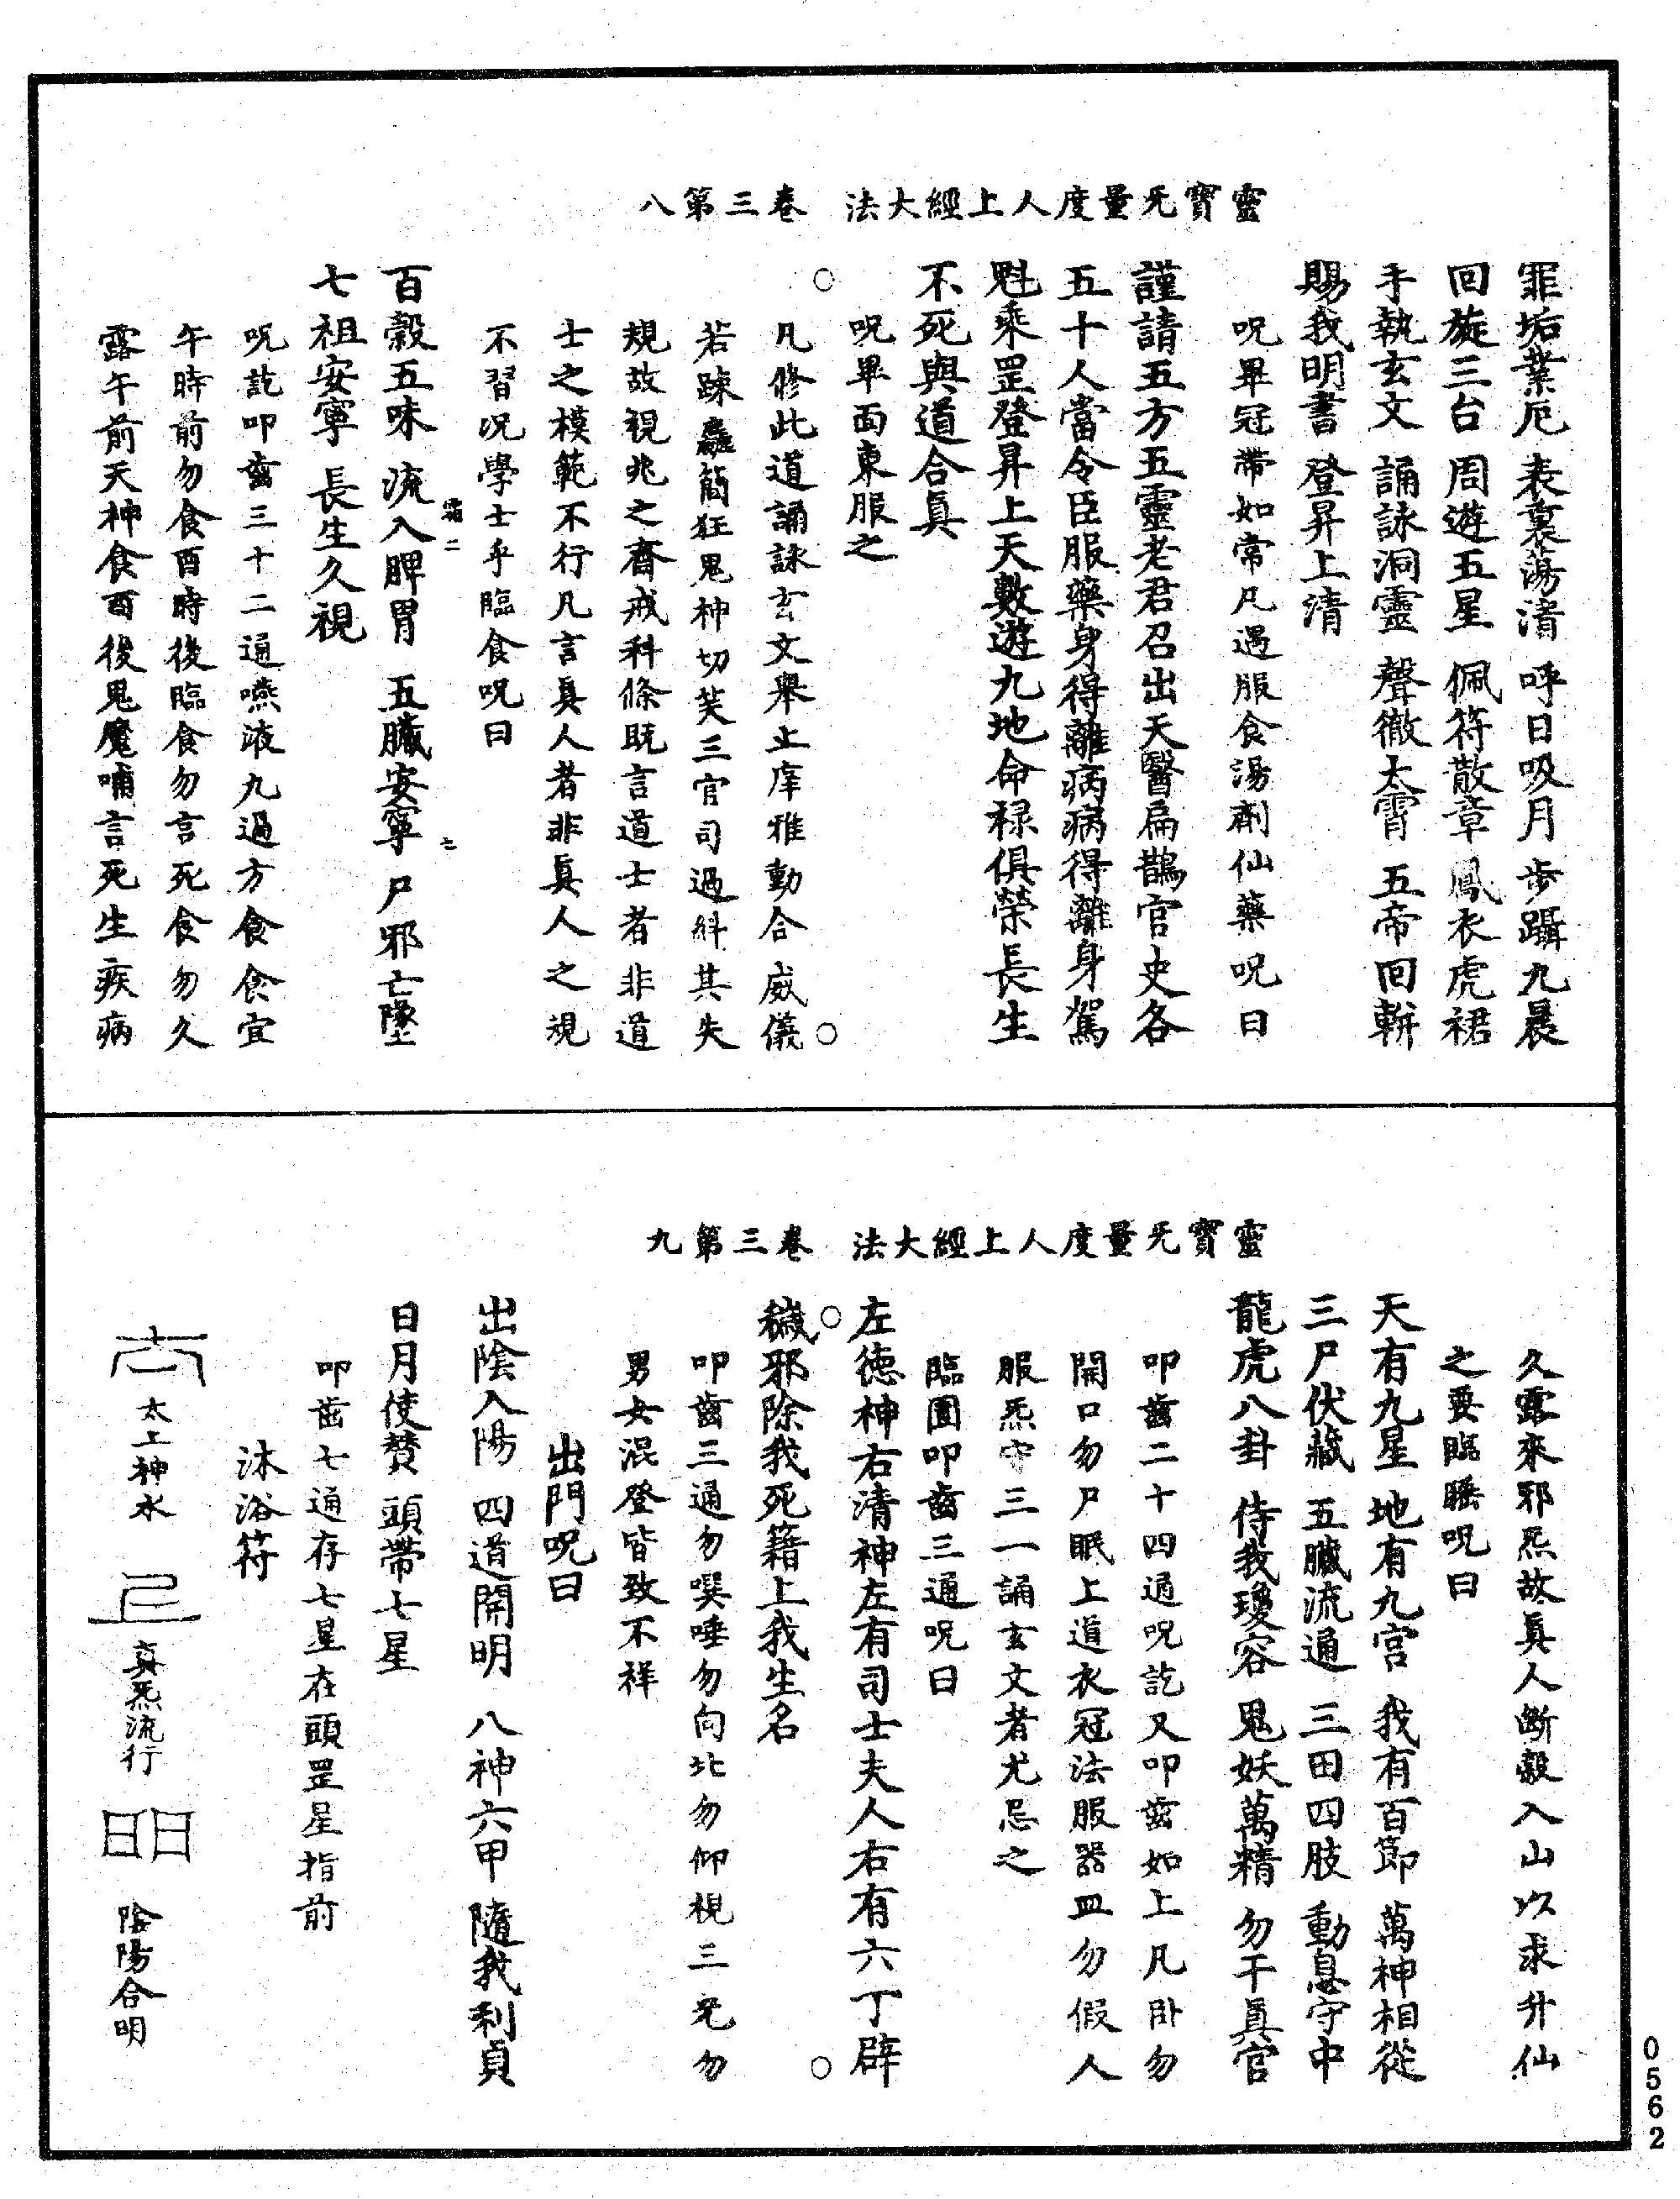 靈寶无量度人上經大法　卷三第八
罪垢業厄　表裏蕩清　呼日吸月　步躡九晨
回旋三台　周遊五星　佩符散章　鳳衣虎裙
手執玄文　誦詠洞靈　聲徹太霄　五帝回軿
賜我明書　登昇上清
呪畢冠帶如常凡遇服食湯劑仙藥呪曰
謹請五方五靈老君召出天醫扁鵲官史各
五十人當令臣服藥身得離病病得離身駕
魁乘罡登昇上天數遊九地命祿俱榮長生
不死與道合真
呪畢面東服之
凡修此道誦詠玄文舉止庠雅動合威儀
若踈麤簡狂鬼神切笑三官司過糾其失
規故視兆之齋戒科條既言道士者非道
士之模範不行凡言真人者非真人之規
不習况學士乎臨食呪曰
霜二　七
百穀五味　流入脾胃　五臟安寧　尸邪亡墜
七祖安寧　長生久視
呪訖叩齒三十二通嚥液九過方食食宜
午時前勿食酉時後臨食勿言死食勿久
露午前天神食酉後鬼魔哺言死生疾病
靈寶无量度人上經大法　卷三第九
久露來邪炁故真人斷穀入山以求升仙
之要臨睡呪曰
天有九星　地有九宮　我有百節　萬神相從
三尸伏藏　五臟流通　三田四肢　動息守中
龍虎八卦　侍我瓊容　鬼妖萬精　勿干真官
叩齒二十四通呪訖又叩齒如上凡卧勿
開口勿尸眠上道衣冠法服器皿勿假人
服炁守三一誦玄文者尤忌之
臨圊叩齒三通呪曰
左德神右清神左有司士夫人右有六丁辟
穢邪除我死籍上我生名
叩齒三通勿噀唾勿向北勿仰視三光勿
男女混登皆致不祥
出門呪曰
出陰入陽　四道開明　八神六甲　隨我利貞
日月使贊　頭帶七星
叩齒七通存七星在頭罡星指前
沐浴符
太上神水
真炁流行
陰陽合明
0562